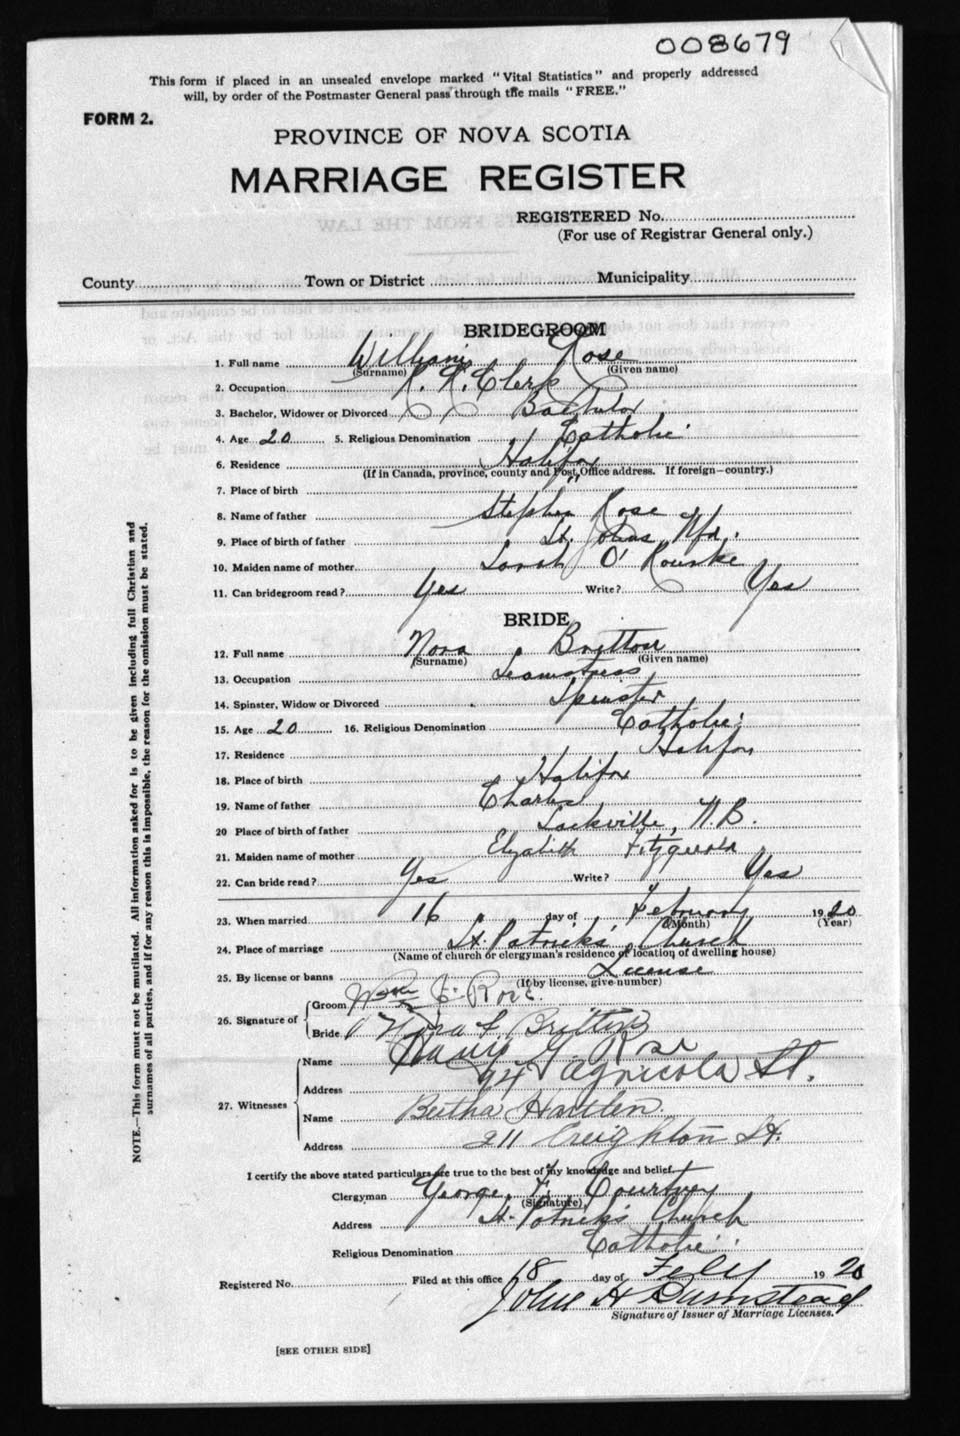 008679
This form if placed in an unsealed envelope marked "Vital Statistics" and properly addressed
will, by order of the Postmaster General pass through the mails "FREE."
FORM 2.
PROVINCE OF NOVA SCOTIA
MARRIAGE REGISTER
REGISTERED No.
(For use of Registrar General only.)
County Town or District Municipality
BRIDEGROOM
1. Full name William Rose
(Surname) (Given name)
2. Occupation R. R. Clerk
3. Bachelor, Widower or Divorced Bachelor
4. Age 20 5. Religious Denomination Catholic
6. Residence Halifax
(If in Canada, province, county and Post Office address. If foreign—country.)
7. Place of birth "
8. Name of father Stephen Rose
9. Place of birth of father St. Johns, Nfd.
10. Maiden name of mother Sarah O'Rourke
11. Can bridegroom read? Yes Write? Yes
BRIDE
12. Full name Nora Britton
(Surname) (Given name)
13. Occupation Seamstress
14. Spinster, Widow or Divorced Spinster
15. Age 20 16. Religious Denomination Catholic
17. Residence Halifax
18. Place of birth Halifax
19. Name of father Charles
20 Place of birth of father Sackville, N.B.
21. Maiden name of mother Elizabeth Fitzgerald
22. Can bride read? Yes Write? Yes
23. When married 16 day of February 1920
(Month) (Year)
24. Place of marriage St. Patrick's Church
(Name of church or clergyman's residence or location of dwelling house)
25. By license or banns License
(If by license, give number)
26. Signature of
Groom Wm Rose
Bride Nora Britton
27. Witnesses
Name Rose
Address 94 Agricola St.
Name Bertha Hartlen
Address 211 Creighton St.
I certify the above stated particulars are true to the best of my knowledge and belief.
Clergyman George F. Courtney
(Signature)
Address St. Patrick's Church
Religious Denomination Catholic
Registered No. Filed at this office 18 day of Feby 1920
John H Bumstead
Signature of Issuer of Marriage Licenses.
[SEE OTHER SIDE]
NOTE.—This form must not be mutilated. All information asked for is to be given including full Christian and
surnames of all parties, and if for any reason this is impossible, the reason for the omission must be stated.